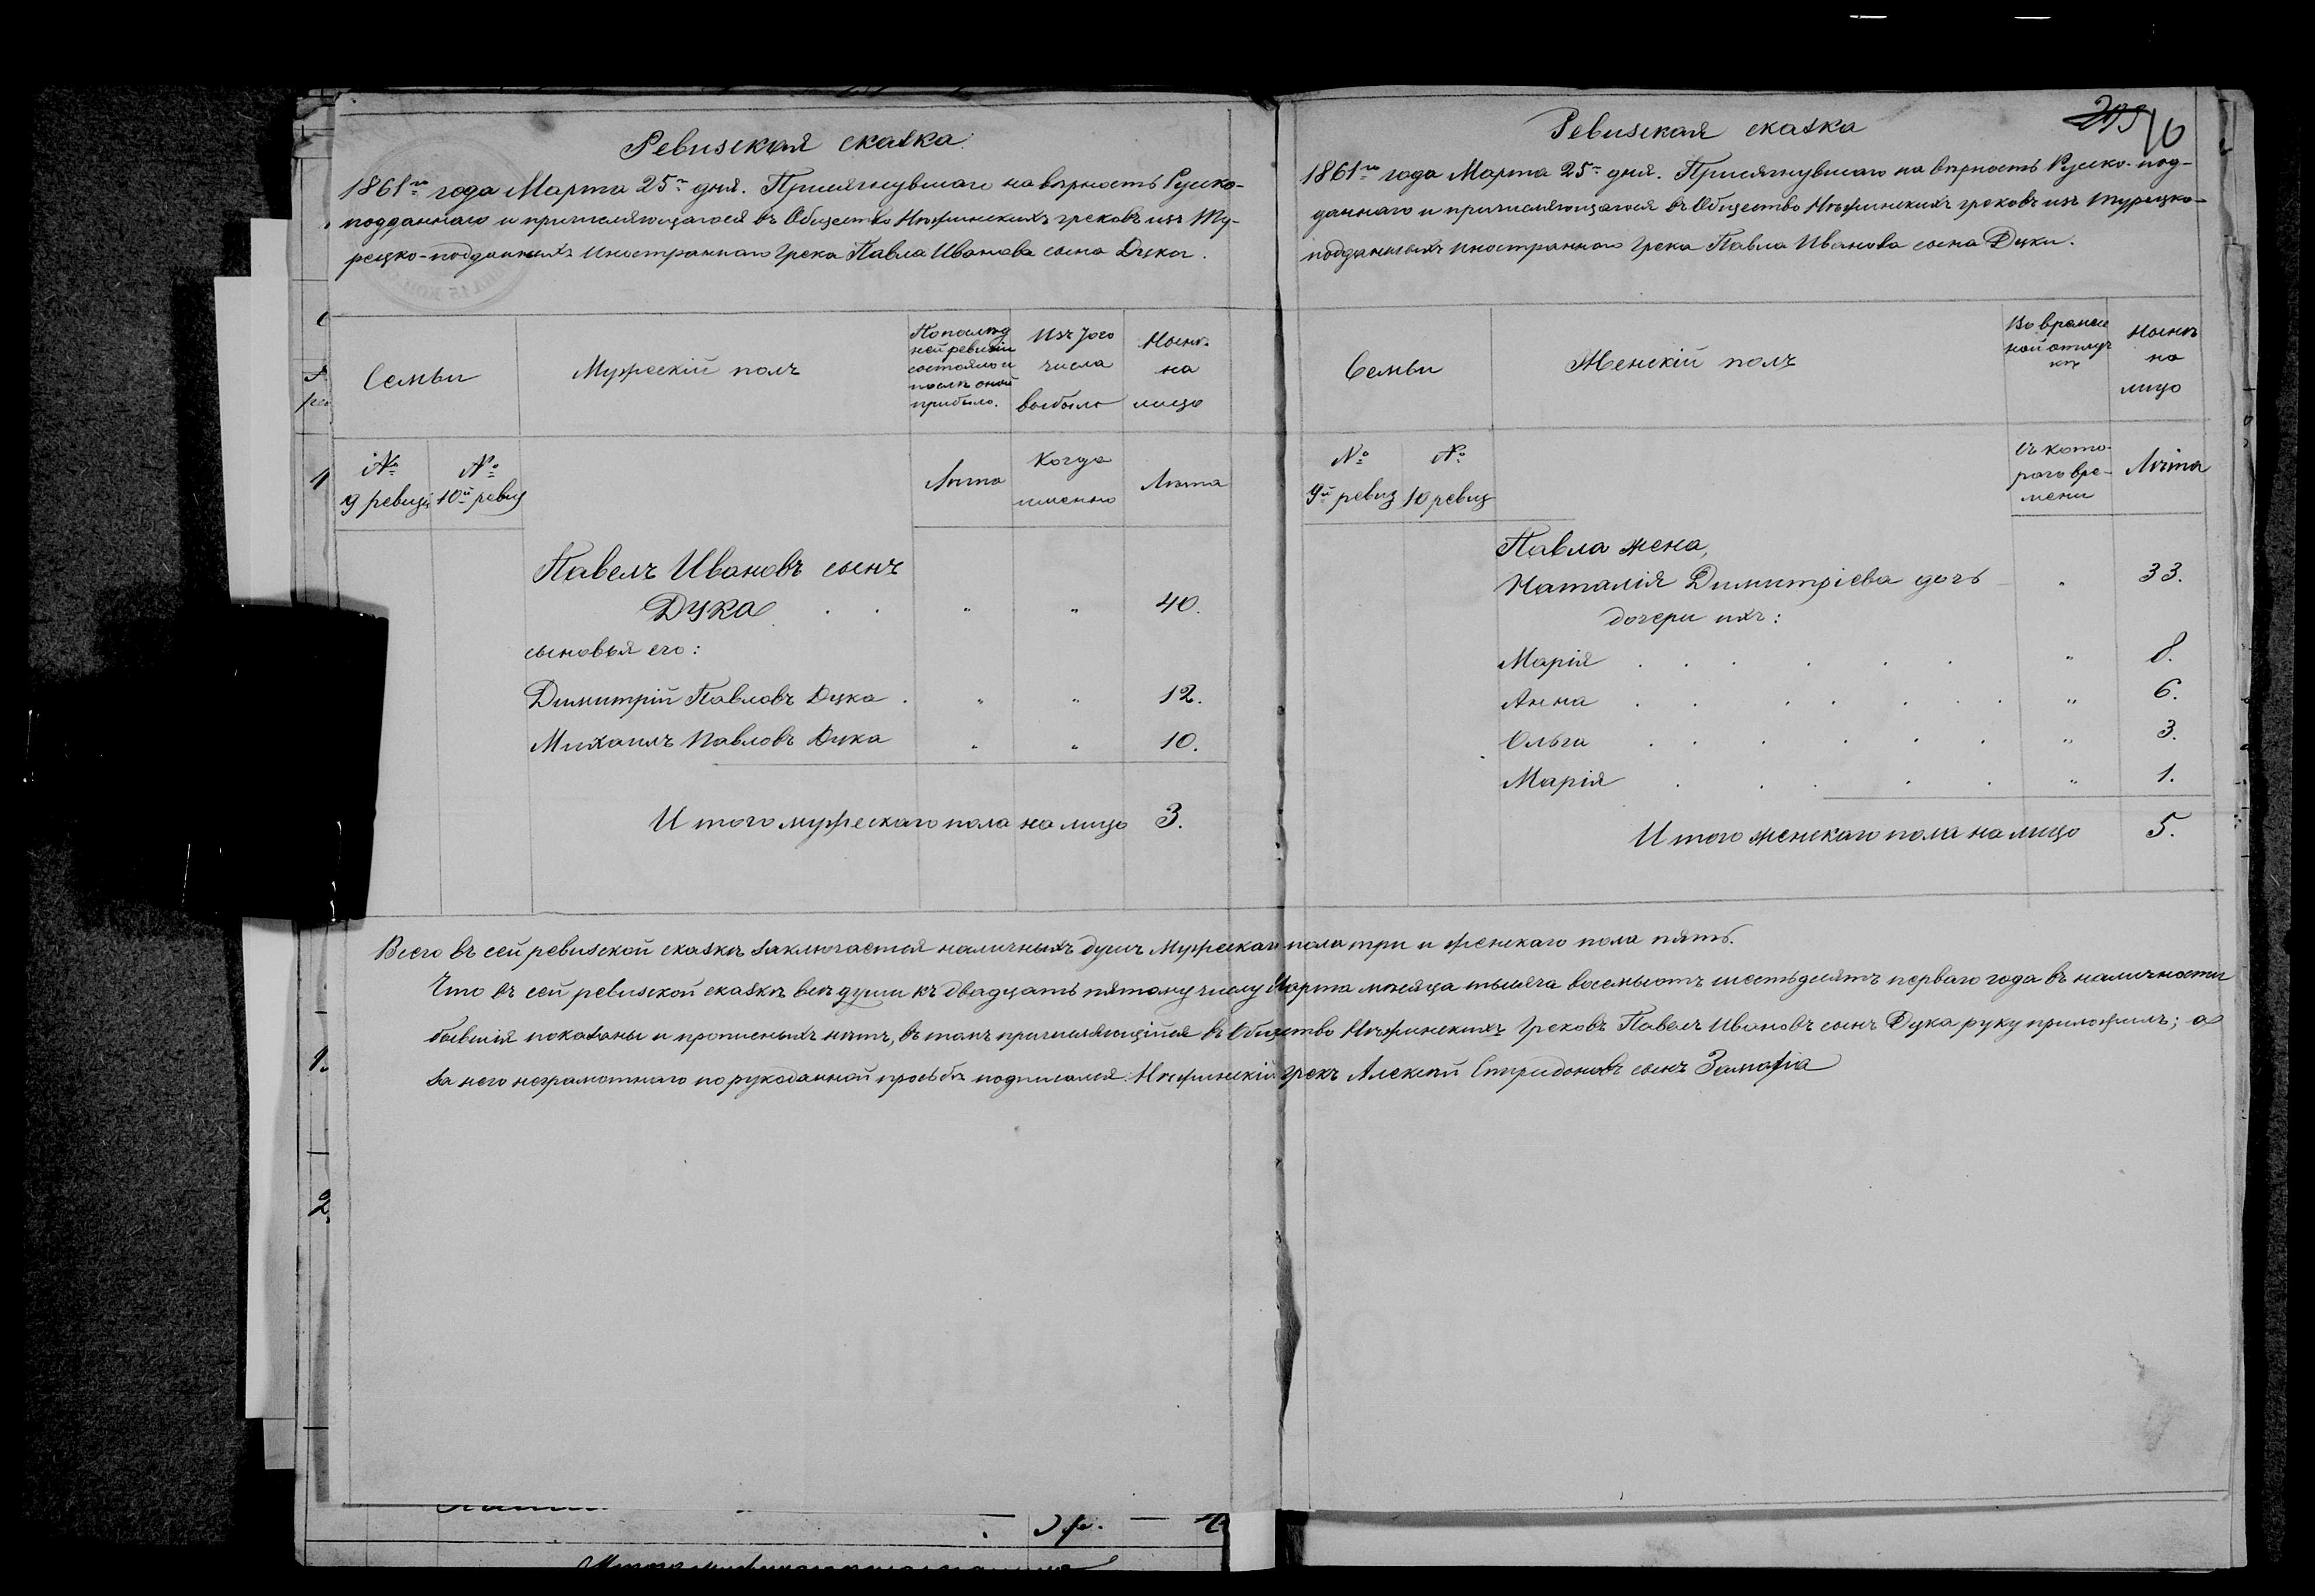 Ревизская сказка
1861го года Марта 25го дня. Присягнувшаго на вѣрность Руско-
подданнаго и причисляющагося въ Общество Нѣжинскихъ грековъ изъ Ту-
рецко-подданныхъ иностраннаго Грека Павла Иванова сына Дуки.
Семьи
Мужескій полъ
По послѣд
ней ревизіи
состояло и
послѣ оной
прибыло.
Изъ того
числа
выбыло
Нынѣ
на
лицо
№
9 ревизіи
№
10й ревиз
Лѣта
Когда
именно
Лѣта
Павелъ Ивановъ сынъ
Дука . . " " 40.
сыновья его:
Димитрій Павловъ Дука . " " 12.
Михаилъ Павловъ Дука " " 10.
И того мужескаго пола на лицо 3.
Ревизская сказка
10
1861го года Марта 25го дня. Присягнувшаго на вѣрность Руско-под-
даннаго и причисляющагося въ Общество Нѣжинскихъ грековъ изъ турецко-
подданныхъ иностраннаго Грека Павла Иванова сына Дуки.
Семьи
Женскій полъ
Во времен
ной отлуч
кѣ
Нынѣ
на
лицо
№
9й ревиз
№
10 ревиз
Съ кото-
раго вре-
мени
Лѣта
Павла жена,
Наталія Димитріева дочь " 33.
дочери ихъ:
Марія . . . . . . " 8.
Анна . . . . . . . " 6.
Ольга . . . . . . " 3.
Марія . . . . . " 1.
И того женскаго пола на лицо 5.
Всего въ сей ревизской сказкѣ заключается наличныхъ душъ Мужескаго пола три и женскаго пола пять.
Что въ сей ревизской сказкѣ всѣ души къ двадцать пятому числу Марта мѣсяца тысяча восемьсотъ шестьдесятъ перваго года въ наличности
бывшія показаны и прописныхъ нѣтъ, въ томъ причисляющійся въ Общество Нѣжинскихъ Грековъ Павелъ Ивановъ сынъ Дука руку приложилъ; а
за него неграмотнаго по рукоданной просьбѣ подписался Нѣжинскій Грекъ Алексѣй Спиридоновъ сынъ